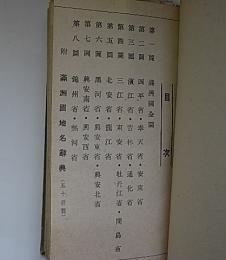 目次
第一圖 滿洲國全圖
第二圖 四平省·奉天省·安東省
第三圖 濱江省·吉林省·通化省
第四圖 三江省·東安省·牡丹江省·間島省
第五圖 北安省·龍江省
第六圖 黑河省·興安東省·興安北省
第七圖 興安南省·興安西省
第八圖 錦州省·熱河省
附 滿洲國地名辭典(五十音順)